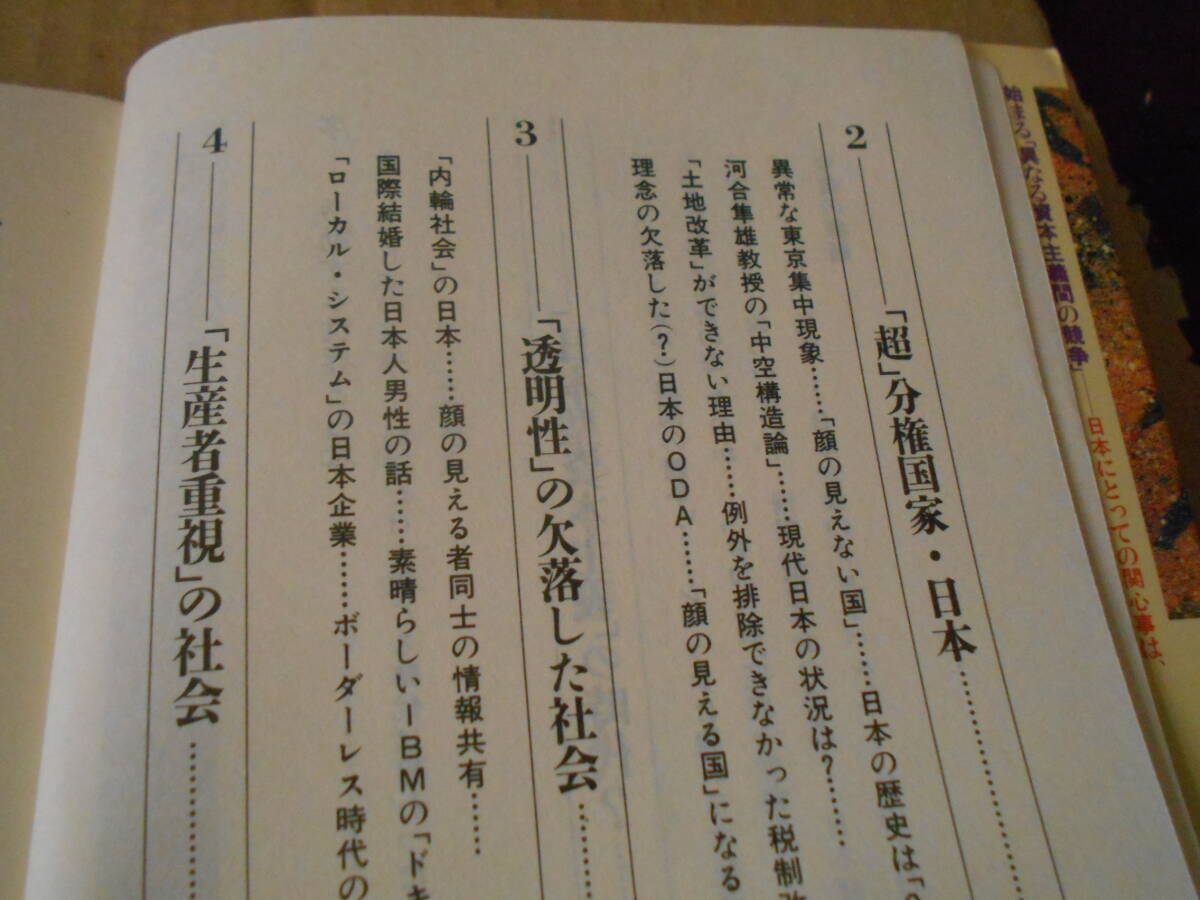 始まる「異なる資本主義間の競争」──日本にとっての関心事は、
2──「超」分権国家・日本……………
異常な東京集中現象……「顔の見えない国」……日本の歴史は「
河合隼雄教授の「中空構造論」……現代日本の状況は？……
「土地改革」ができない理由……例外を排除できなかった税制改
理念の欠落した(？)日本のODA……「顔の見える国」になる
3──「透明性」の欠落した社会…………
「内輪社会」の日本……顔の見える者同士の情報共有……
国際結婚した日本人男性の話……素晴らしいIBMの「ドキ
「ローカル・システム」の日本企業……ボーダーレス時代の
4──「生産者重視」の社会…………